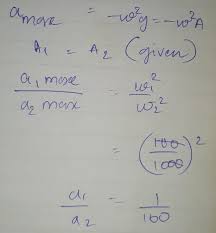 a max = -ω²y = -ω²A
A₁ = A₂ (given)
a₁ max / a₂ max = ω₁² / ω₂²
= (100 / 1000)²
a₁ / a₂ = 1 / 100